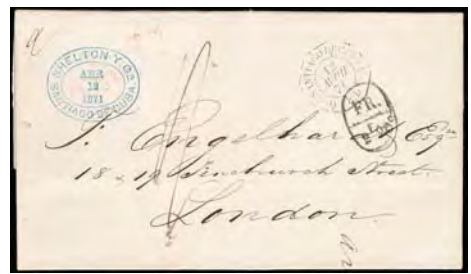 SHELTON Y Ca.
ABR
12
1871
SANTIAGO DE CUBA
FR.
S. Engelhardt Esqr
18 & 19 Fenchurch Street
London